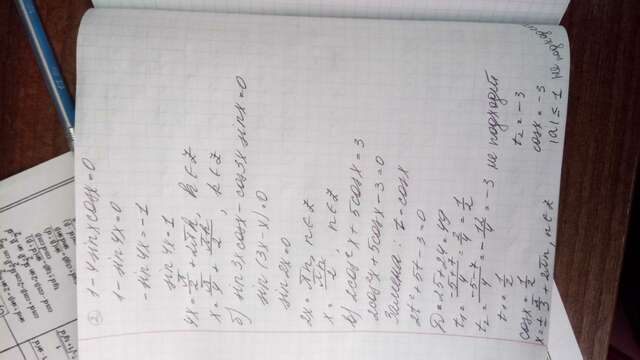 2) 1-4sinxcosx=0
1-sin4x=0
-sin4x=-1
sin4x=1
4x=π/2+πk, k∈Z
x=π/4+πk/2, k∈Z
б) sin3xcosx-cos3xsinx=0
sin(3x-x)=0
sin2x=0
2x=πn, n∈Z
x=πn/2, n∈Z
в) 2cos²x+5cosx=3
2cos²x+5cosx-3=0
Замена: t=cosx
2t²+5t-3=0
D=25+24=49
t₁=(-5+7)/4=2/4=1/2
t₂=(-5-7)/4=-12/4=-3 не подходит
t₁=1/2
cosx=1/2
x=±π/3+2πn, n∈Z
t₂=-3
cosx=-3
|a|≤1 не подходит